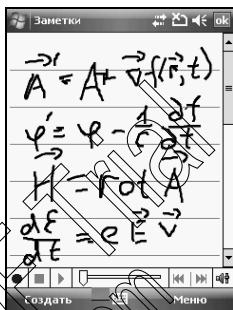 Заметки ok
A⃗' = A⃗ + ∇⃗f(r⃗,t)
φ' = φ - 1/c ∂f/∂t
H⃗ = rot A⃗
dε/dt = e E⃗ v⃗
Создать Меню